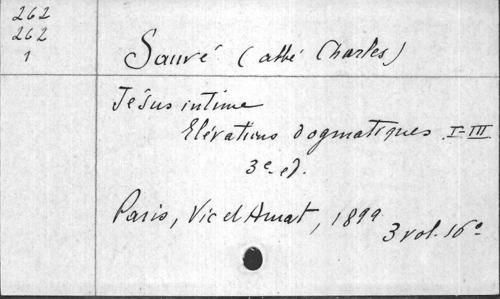 262
262
1
Sauvé (abbé Charles)
Jésus intime
Elévations dogmatiques I-III
3e éd.
Paris, Vic et Amat, 1899
3 vol. 16°